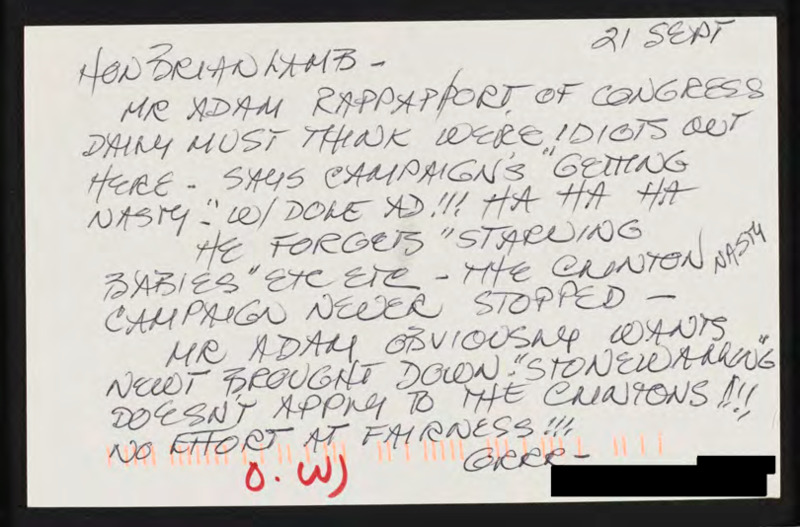 21 SEPT
HON BRIAN LAMB -
MR ADAM RAPPAPPORT OF CONGRESS
DAILY MUST THINK WERE IDIOTS OUT
HERE - SAYS CAMPAIGN'S "GETTING
NASTY" W/ DOLE AD!!! HA HA HA
HE FORGETS "STARVING
BABIES" ETC ETC - THE CLINTON NASTY
CAMPAIGN NEVER STOPPED -
MR ADAM OBVIOUSLY WANTS
NEWT BROUGHT DOWN. "STONEWALLING"
DOESN'T APPLY TO THE CLINTONS!!!
NO EFFORT AT FAIRNESS!!!
GRRR -